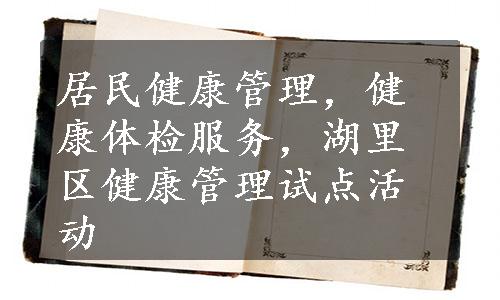 居民健康管理，健
康体检服务，湖里
区健康管理试点活
动